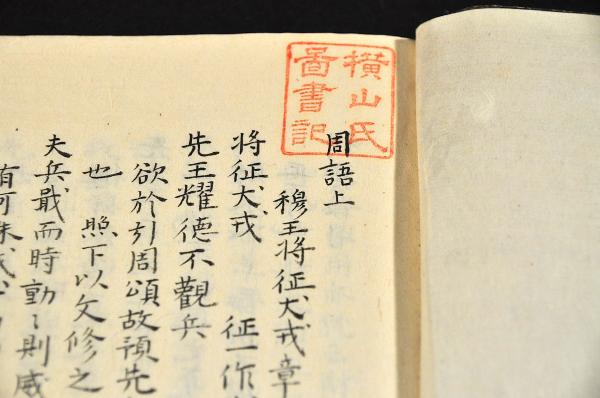 横山氏
圖書記
周語上
穆王将征犬戎章
将征犬戎 征一作
先王耀德不觀兵
欲於引周頌故預先
也 照下以文修之
夫兵戢而時動〻則威